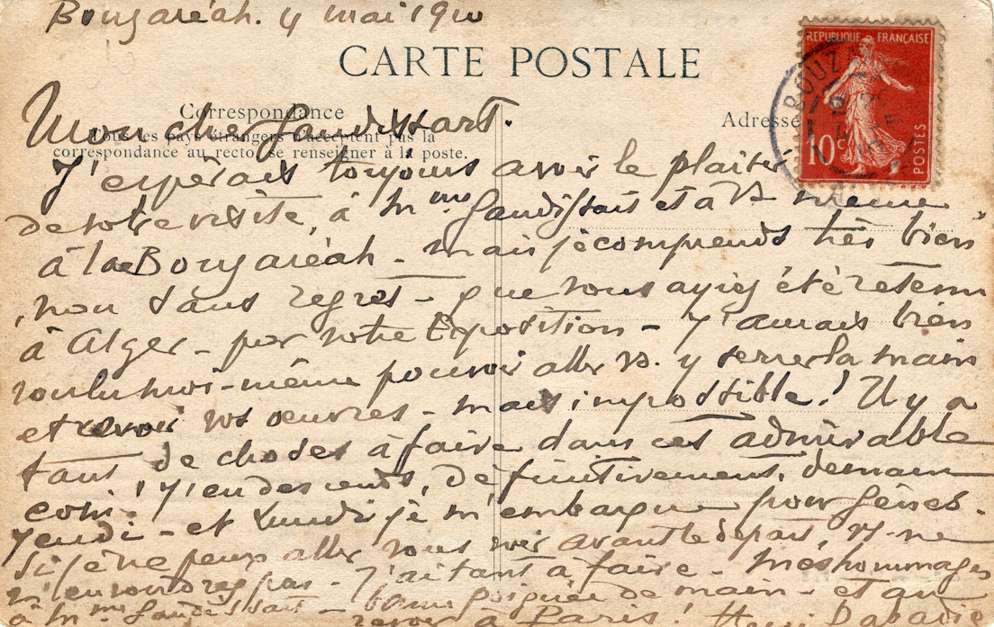 Bouzaréah. 4 mai 1910
CARTE POSTALE
Correspondance
Tous les pays étrangers n'acceptent pas la
correspondance au recto se renseigner à la poste.
Adresse
RÉPUBLIQUE FRANÇAISE
10c
POSTES
BOUZA
Mon cher Gaudissart.
J'espérais toujours avoir le plaisir
de votre visite, à Mme Gaudissart et à Vs même,
à la Bouzaréah - mais je comprends très bien
, non sans regret - que vous ayiez été retenu
à Alger - par votre Exposition - J'aurais bien
voulu moi-même pouvoir aller vs. y serrer la main
et revoir vos œuvres - mais impossible! Il y a
tant de choses à faire dans ces admirable
coin! J'en descends, définitivement, demain
Jeudi - et Lundi je m'embarque pour Gênes.
Si je ne peux aller vous voir avant le départ, vs. ne
m'en voudrez pas - J'ai tant à faire - Mes hommages
à Mme Gaudissart - bonne poignée de main - et au
revoir à Paris! Henri Dabadie